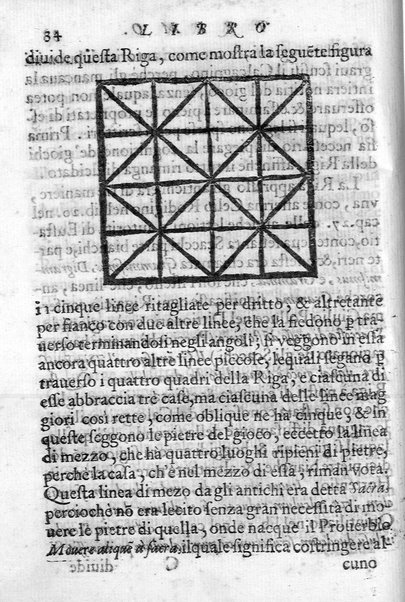 84 LIBRO
diuide q̃sta Riga, come mostra la seguẽte figura
in cinque linee ritagliate per dritto, & altretante
per fianco con due altre linee, che la fiedono ꝑ tra
uerso terminandosi negli angoli; si veggono in essa
ancora quattro altre linee piccole, lequali segano ꝑ
trauerso i quattro quadri della Riga, e ciascuna di
esse abbraccia tre case, ma ciascuna delle linee mag
giori cosi rette, come oblique ne ha cinque, & in
queste seggono le pietre del gioco, eccetto la linea
di mezzo, che ha quattro luoghi ripieni di pietre,
perche la casa, ch'è nel mezzo di essa, riman vota.
Questa linea di mezo da gli antichi era detta Sacra
percioche nõ era lecito senza gran necessità di mo-
uere le pietre di quella, onde nacque il Prouerbio
Mouere aliquẽ à sacra, il quale significa costringere al
cuno